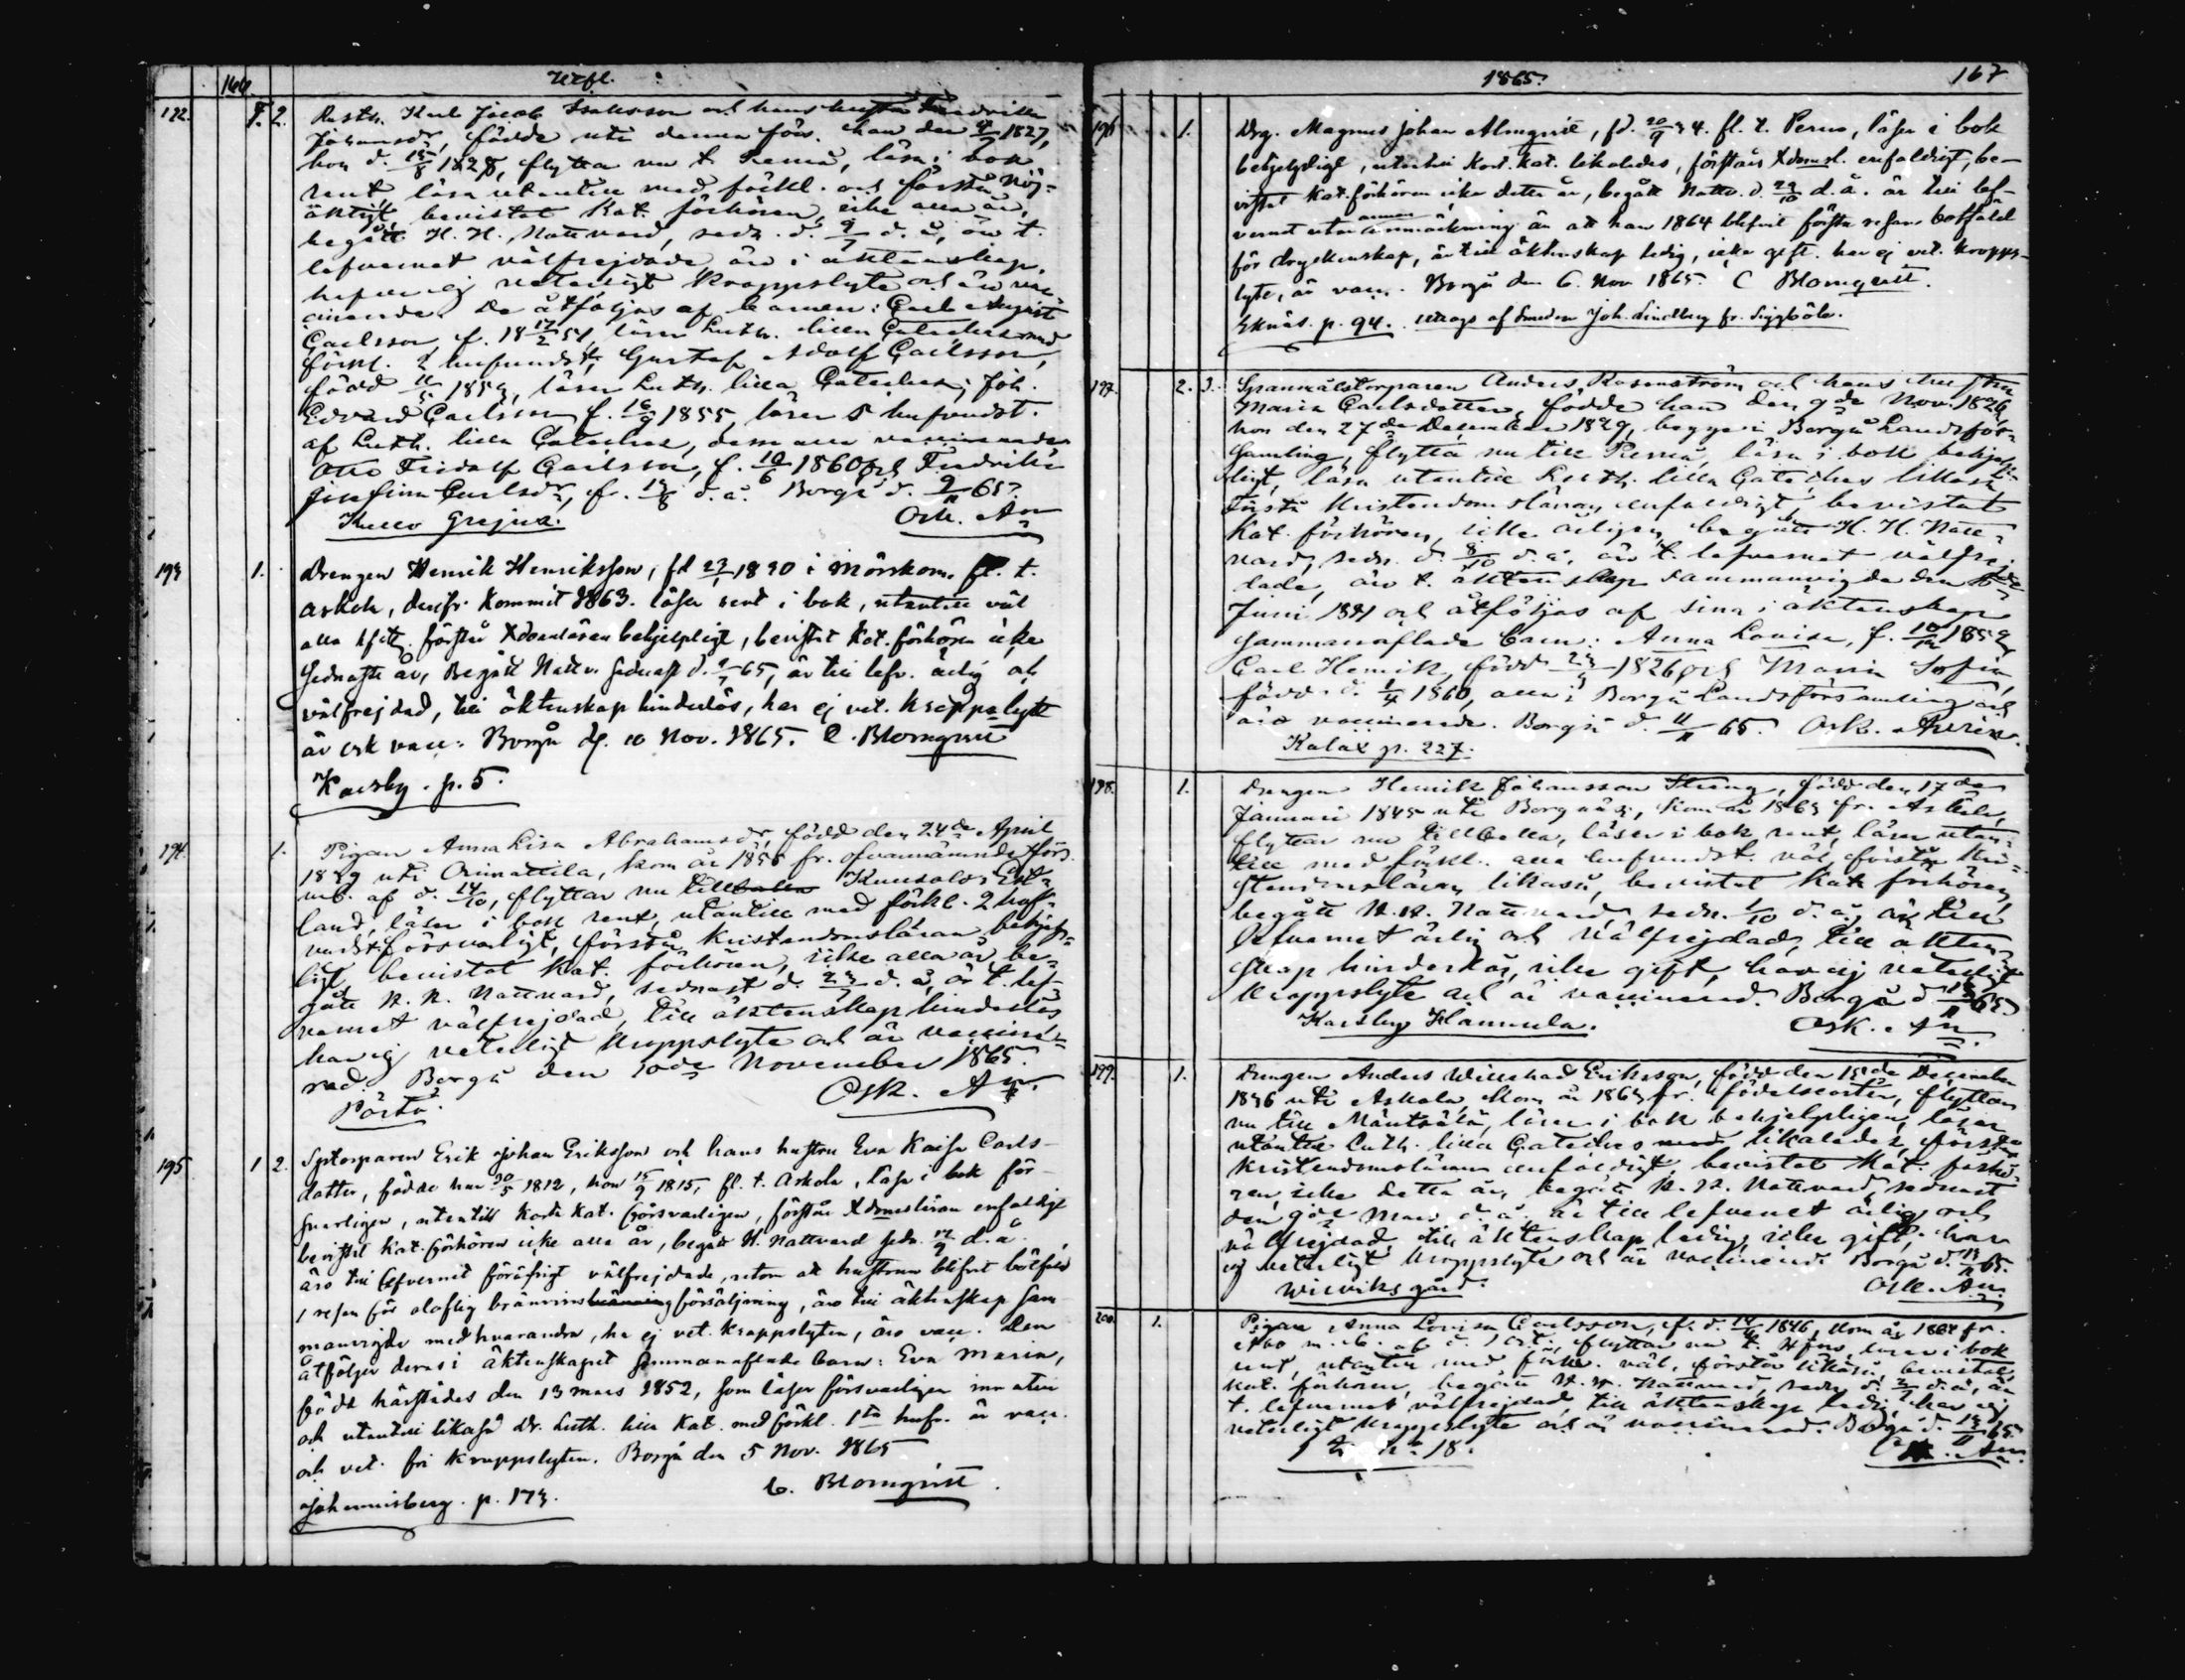 166. Utfl.
192. F. 2. Rusth. Karl Jacob Isaksson och hans hustru Fredrika
Johansdr, födde uti denna förs. han den 1827,
hon d. 15/8 1828, flytta nu t. Pernå, läsa i bok
rent, läsa utantill med förkl. och förstå nöj-
aktigt, bevistat Kat. förhören, icke alla år,
begått H. H. Nattvard, sedn. d. 9/7 d. å, äro t.
lefvernet välfrejdade äro i äktenskap,
hafva ej veterligt kroppslyte och äro vac-
cinerade. De åtföljas af barnen: Carl August
Carlsson, f. 18 17/2 51, läser Luth. lilla Cateches med
förkl. 2 hufvudst. Gustaf Adolf Carlsson,
född 1853, läser Luth. lilla Cateches; Joh.
Edvard Carlsson f. 16/9 1855, läser 5 hufvudst.
af Luth. lilla Cateches, dem alla vaccinerade
Otto Fridolf Carlsson, f. 10/6 1860 och Fredrika
Josefina Carlsdr, f. d. å. Borgå d. 9/11 65.
Kullo Grejus. Osk. An
193. 1. Drengen Henrik Henriksson, fd 23/1 1840 i Mörskom. fl. t.
Askola, derifr. kommit 1863. läser rent i bok, utantill väl
alla hfstn. förstår Xdomläran behjelpligt, bevistat Kat. förhören icke
sednaste år, Begått Nattv. sednast d. 65, är till lefv. ärlig och
välfrejdad, till äktenskap hinderlös, har ej vet. kroppslyte
är och vacc. Borgå d. 10 Nov. 1865. C. Blomqvist
Karsby. p. 5.
194. 1. Pigan Anna Lisa Abrahamsdr, född den 24de April
1839 uti Orimattila, kom år 1855 fr. ofvannämnde förs.
mb. af d. 14/10, flyttar nu till Kuusalo i Est-
land, läser i bok rent, utantill med förkl. 2 huf-
vudst. försvarligt, förstår kristendomsläran behjelp-
ligt, bevistat Kat. förhören, icke alla år, be-
gått H. H. Nattvard, sednast d. 23/7 d. å, är t. lef-
vernet välfrejdad, till äktenskap hinderlös
har ej veterligt kroppslyte och är vaccine-
rad. Borgå den 10de November 1865.
Pörtö. Osk. An
195 1 2. Sptorparen Erik Johan Eriksson och hans hustru Eva Kaisa Carls-
dotter, födde han 30/5 1812, hon 15/9 1815, fl. t. Askola, läsa i bok för-
svarligen, utantill korta Kat. försvarligen, förstå Xdomsläran enfaldigt
bevistat Kat. förhören icke alla år, begått H. Nattvard sedn. 17/9 d. å.
äro till lefvernet föröfrigt välfrejdade, utom att hustrun blifvit bötfäld
1 resa för olaflig bränvinsbränning försäljning, äro till äktenskap sam
manvigde med hvarandra, ha ej vet. kroppslyten, äro vacc. Dem
åtföljer deras i äktenskapet sammanaflade barn: Eva Maria,
född härstädes den 13 mars 1852, som läser försvarligen inn atur
och utantill likaså Dr. Luth. lilla Kat. med förkl. 1sta hufv. är vacc.
och vet. fri kroppslyten. Borgå den 5 Nov. 1865
Johannisberg. p. 173. C. Blomqvist.
1865. 167
196 1. Drg. Magnus Johan Almqvist, fd. 20/9 34. fl. t. Perno, läser i bok
behjelpligt, utantill kort. kat. likaledes, förstår Xdomsl. enfaldigt, be-
vistat Kat. förhören icke detta år, begått Nattv. d. 23/10 d. å. är till lef-
vernet utan annan anmärkning än att han 1864 blifvit första resan botfäld
för dryckenskap, är till äktenskap ledig, icke gift. har ej vet. kropps-
lyte, är vacc. Borgå den 6. Nov 1865. C Blomqvist.
Eknäs. p. 94. uttags af Smeden Joh. Lindberg fr. Siggböle.
197. 2. 3. Spannmålstorparen Anders Rosenström och hans hustru
Maria Carlsdotter, födde han den 9de Nov. 1826,
hon den 27de December 1829, begge i Borgå Landsför-
samling, flytta nu till Pernå, läsa i bok behjelp-
ligt, läsa utantill Luth. lilla Cateches likaså
förstå kristendomsläran enfaldigt, bevistat
Kat. förhören, icke årligen, begått H. H. Natt-
vard, sedn. d. 8/10 d. å, äro t. lefvernet välfrej-
dade, äro t. äktenskap sammanvigde den
Juni 1851 och åtföljas af sina i äktenskap
sammanaflade barn: Anna Lovisa, f. 1852
Carl Henrik, född och Maria Sofia
född d. 1/4 1860, alla i Borgå Landsförsamling och
äro vaccinerade. Borgå d. 11/11 65. Osk. Alrén.
Kalax p. 227.
198. 1. Drengen Henrik Johansson Streng, född den 17de
Januari 1845 uti Borgnäs, kom år 1863 fr. Askola,
flyttar nu till, läser i bok rent, läser utan-
till med förkl. alla hufvudst. väl, förstår Kri-
stendomsläran likaså, bevistat Kat. förhören,
begått H. H. Nattvard, sedn. 1/10 d. å, är till
lefvernet ärlig och välfrejdad, till äkten-
skap hinderlös, icke gift, har ej veterligt
kroppslyte och är vaccinerad. Borgå d 65
Karsby Hannula. Osk. An
199. 1. Drengen Anders Willehad Eriksson, född den 15de December
1846 uti Askola, kom år 1863 fr. födelseorten, flyttar
nu till Mäntsälä, läser i bok behjelpligen, läser
utantill Luth. lilla Cateches likaledes, förstår
Kristendomsläran enfaldigt, bevistat Kat. förhö-
ren, icke detta år, begått H. H. Nattvard, sednast
den Mars d. å. är till lefvernet ärlig och
välfrejdad, till äktenskap ledig, icke gift, har
ej vetterligt kroppslyte och är vaccinerad. Borgå d. 13/11 65.
Wieviks gård. Osk. An
200. 1. Pigan Anna Lovisa Carlsson, f. d. 1846, kom år 1864 fr.
m. b. af d. flyttar nu t. läser i bok
rent, utantill med förkl. väl, förstår likaså, bevistat
Kat. förhören, begått H. H. Nattvard, sedn. d. 2/7 d. å, är
t. lefvernet välfrejdad, till äktenskap ledig, har ej
veterligt kroppslyte och är vaccinerad. Borgå d. 65.
18.